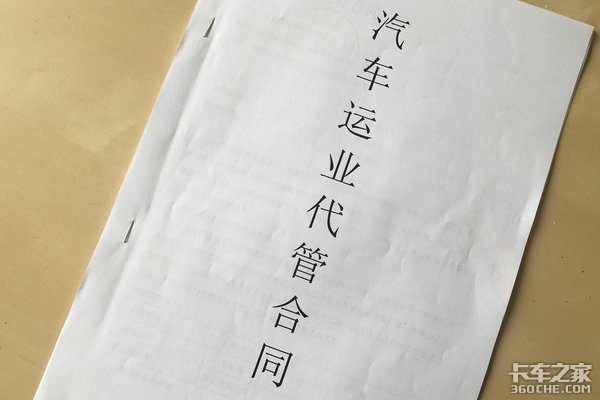 汽车运业代管合同
卡车之家
360CHE.COM